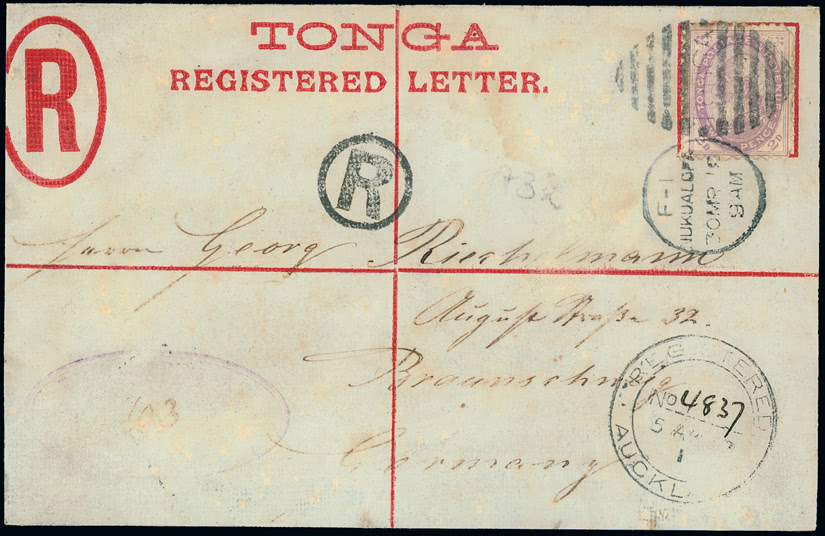 TONGA
REGISTERED LETTER.
R
R
PENCE 2D
F-1
NUKUALOFA
30MR
9 AM
Herrn Georg Riechelmann
August Straße 32.
Braunschweig
Germany
REGISTERED
No 4837
5 A
1
AUCKL